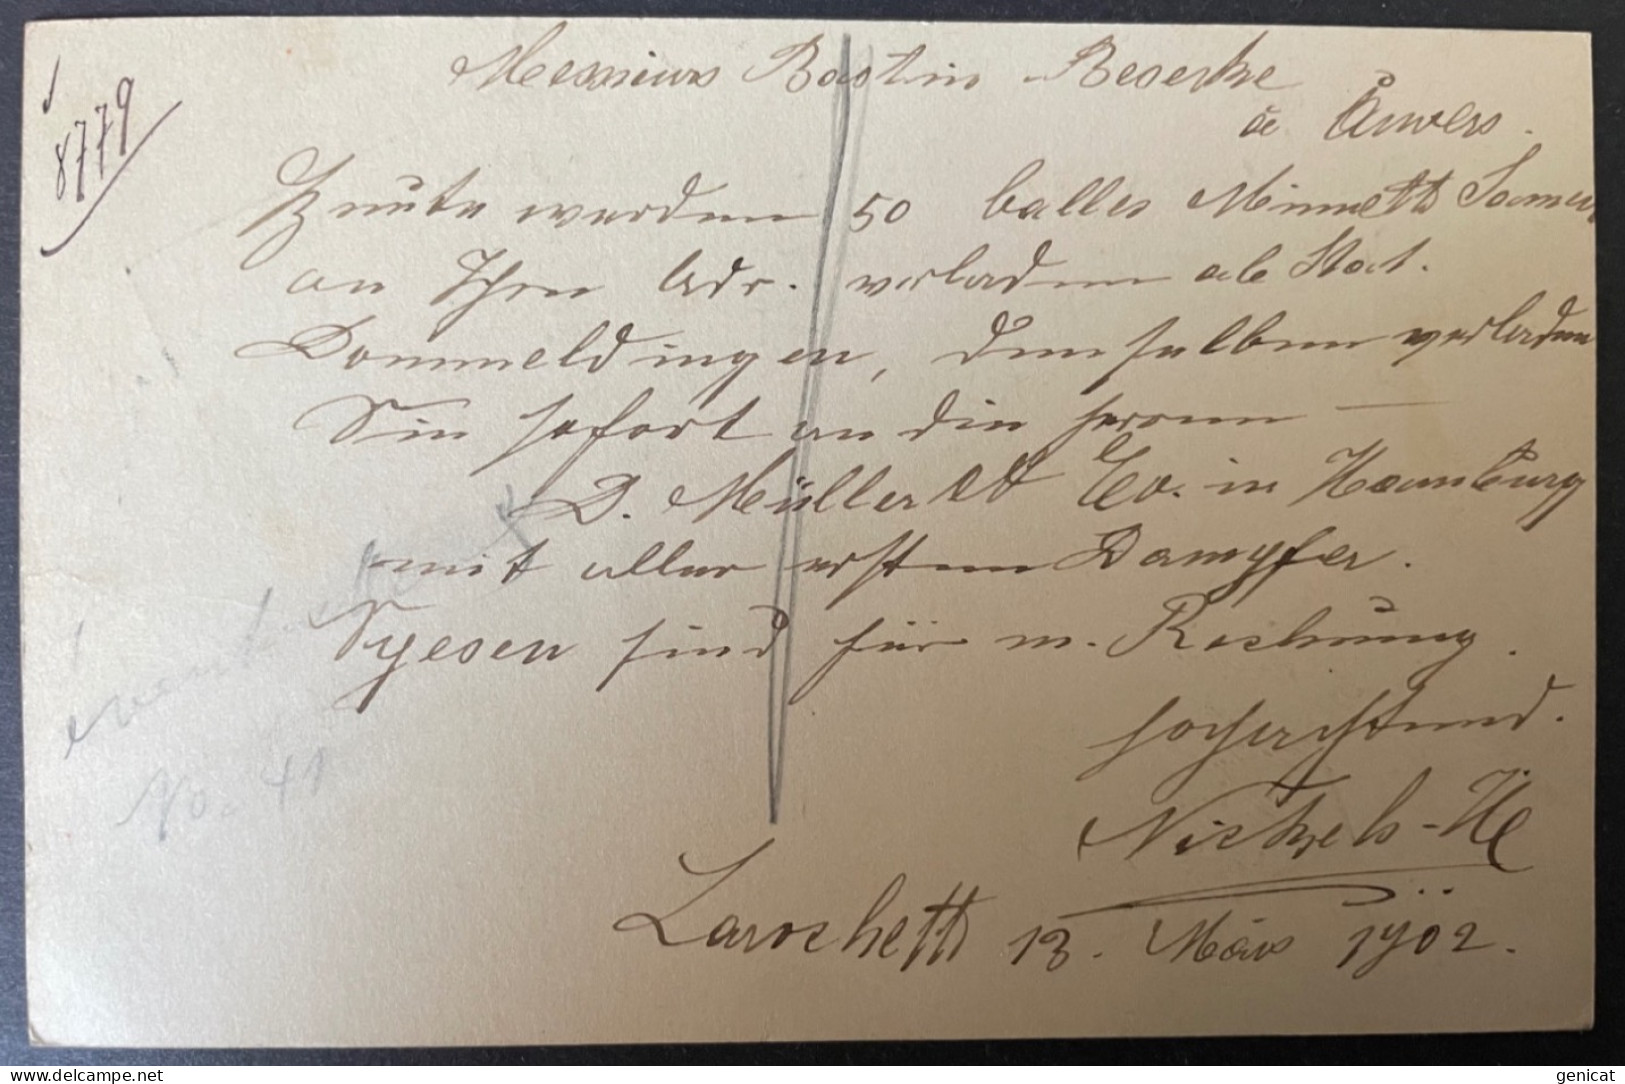 8779
Messieurs Bastin Beseke
à Anvers.
Heute werden 50 balles Minnett Samen
an Ihre Adr. verladen ab Stat.
Dommeldingen, denselben verladen
Sie sofort an die Herren —
D. Müller & Co. in Hamburg
mit aller erstem Dampfer.
Spesen sind für m. Rechnung.
Hochachtend.
Nickels-
Larochette 18. März 1902.
No. 41
genicat